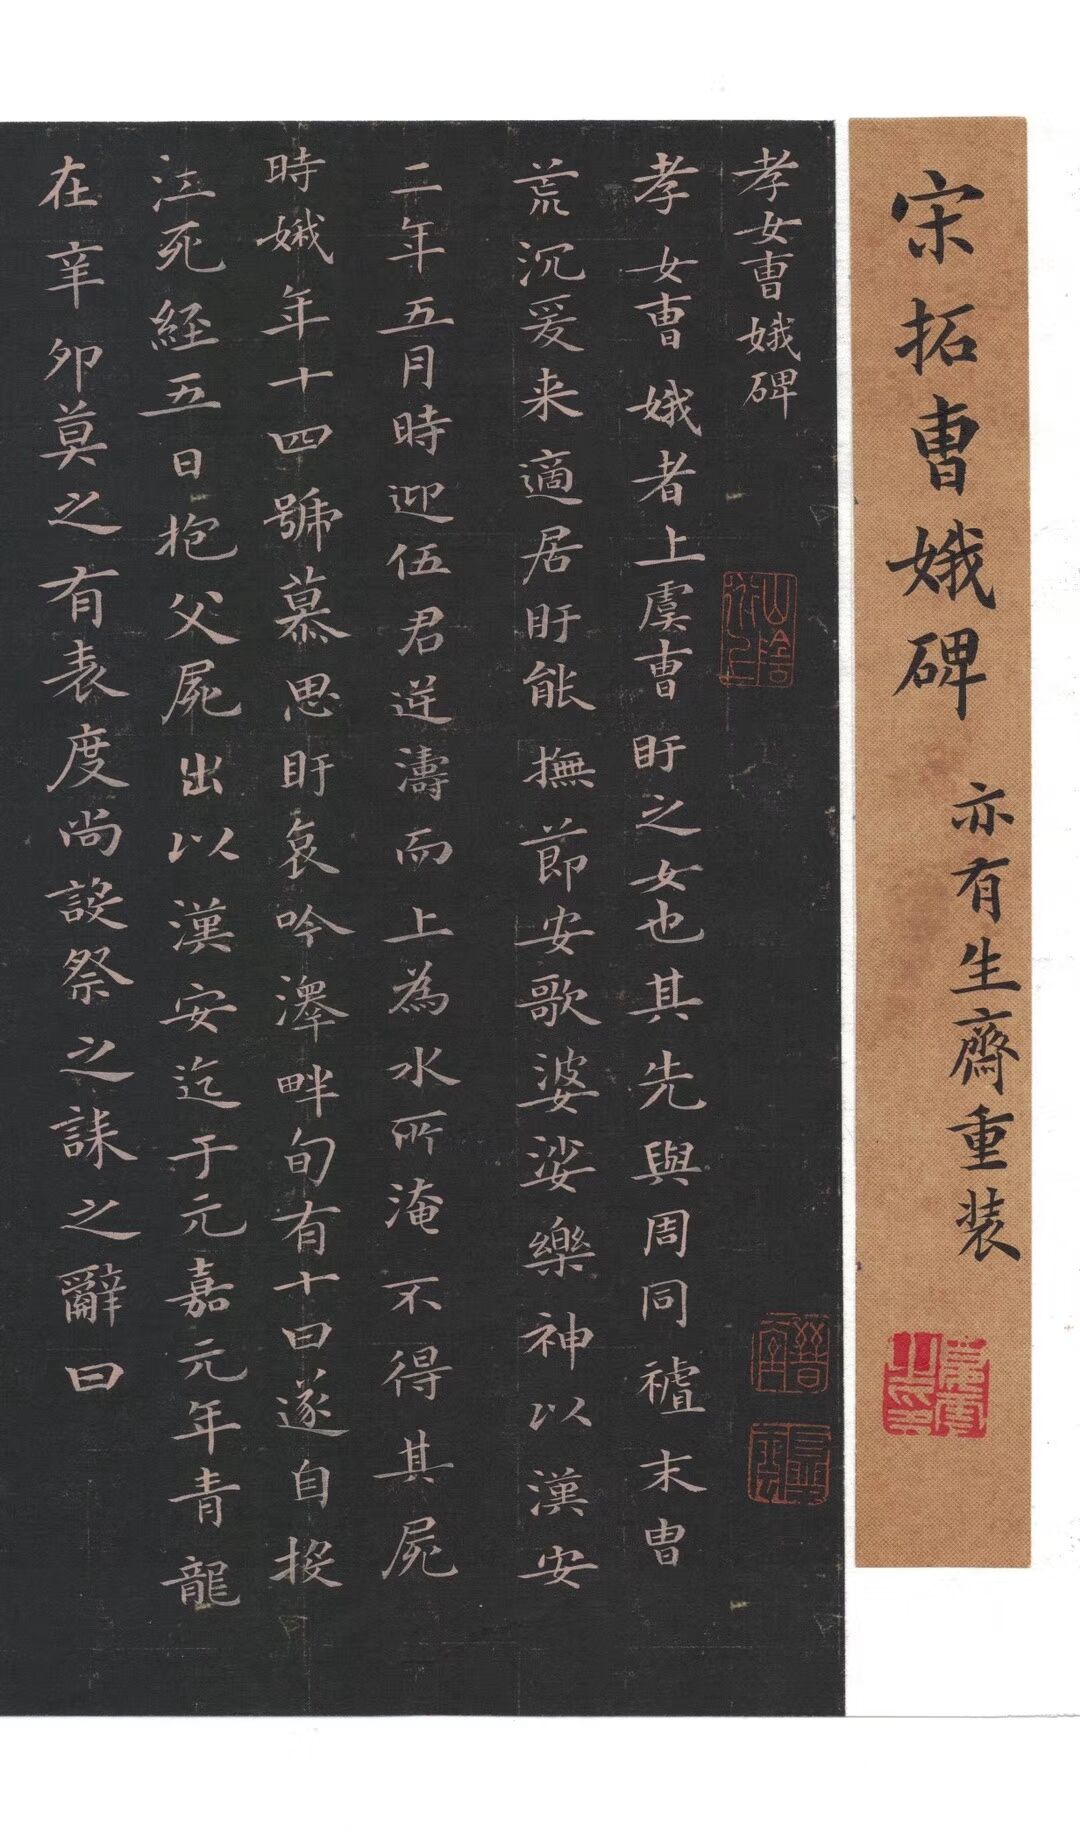 宋拓曺娥碑
亦有生齋重装
孝女曺娥碑
孝女曺娥者上虞曺盱之女也其先與周同禇末曺
荒沉爰来適居盱能撫節安歌婆娑樂神以漢安
二年五月時迎伍君逆濤而上為水所淹不得其屍
時娥年十四號慕思盱哀吟澤畔旬有十曰遂自投
江死経五日抱父屍出以漢安迄于元嘉元年青龍
在辛卯莫之有表度尚設祭之誄之辭曰
山陰